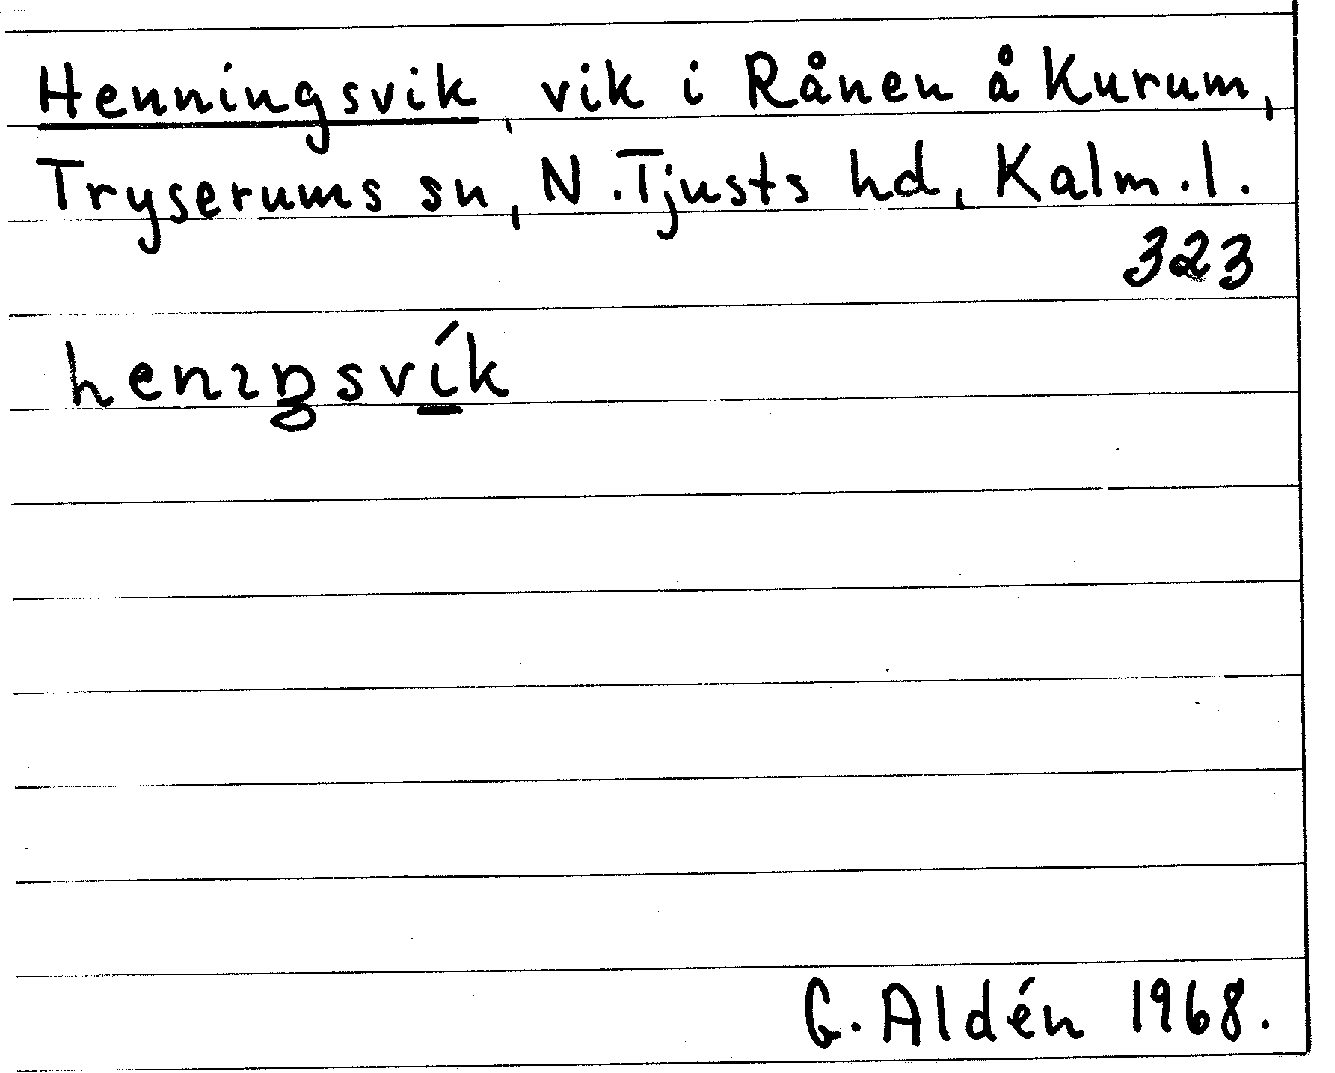 Henningsvik, vik i Rånen å Kurum,
Tryserums sn, N. Tjusts hd, Kalm. l.
323
henıŋsvík
G. Aldén 1968.